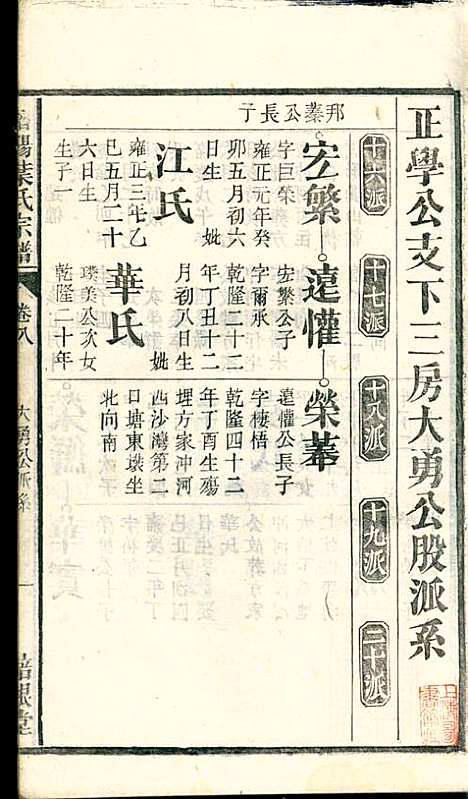 正學公支下三房大勇公股派系
十六派
十七派
十八派
十九派
二十派
邦蓁公長子
宏繁
字巨榮
雍正元年癸
卯五月初六
日生 妣
江氏
雍正三年乙
巳五月二十
六日生
生子一
遠懽
宏繁公子
字爾承
乾隆二十三
年丁丑十二
月初八日生
妣
華氏
璞美公次女
乾隆二十年
榮菶
遠懽公長子
字棲梧
乾隆四十二
年丁酉生殤
埋方家冲河
西沙灣第二
口塘東塝坐
北向南
葉氏宗譜
卷八
大勇公派系
一